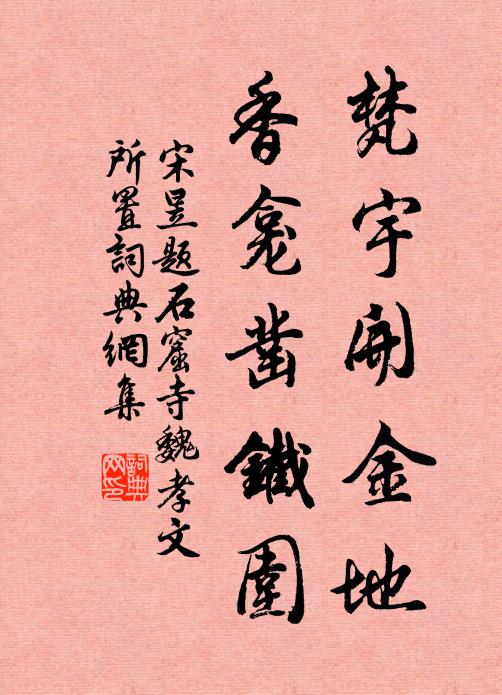 梵宇開金地
香龕鑿鐵圍
宋昱題石窟寺魏孝文
所置詞典網集
詞典網印